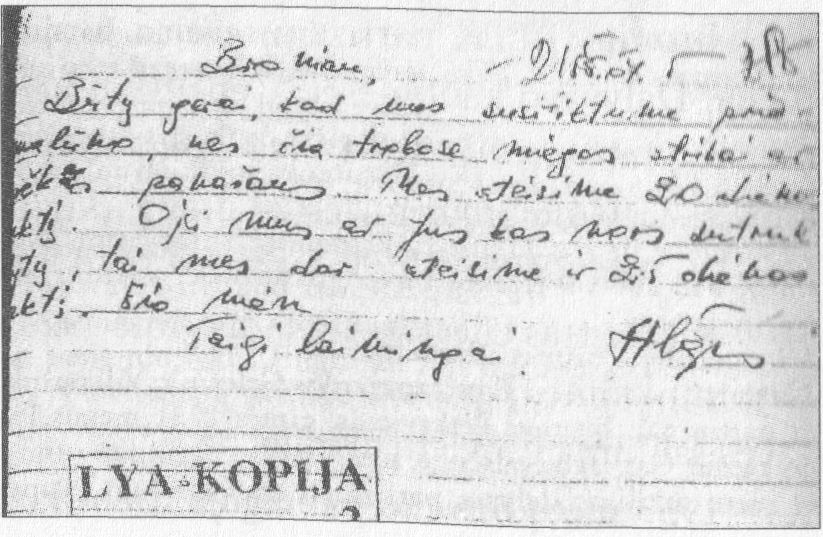 Broniau,
Būtų gerai, kad mes susitiktume prie
nes čia trobose miegos stribai ar
panašaus. Mes ateisime 20 dieno
aktį. O jei mus ar jus kas nors sutruk
ytų, tai mes dar ateisime ir 25 dienos
aktį. šio mėn
Taigi laimingai.
LYA-KOPIJA